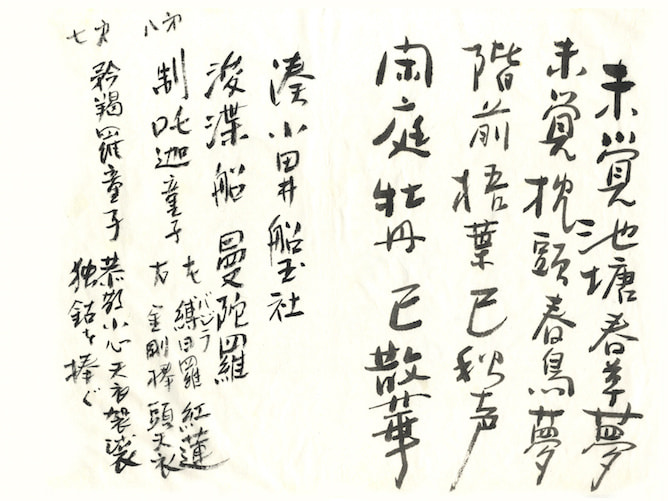 未覚池塘春草夢
未覚枕頭春鳥夢
階前梧葉已秋声
閑庭牡丹已散華
湊小田井船玉社
浚渫船 曼陀羅
八才 制吒迦童子 左 縛日羅 紅蓮
バジラ
右 金剛棒頭天衣
七才 矜羯羅童子 恭敬小心天衣袈裟
独鈷を捧ぐ